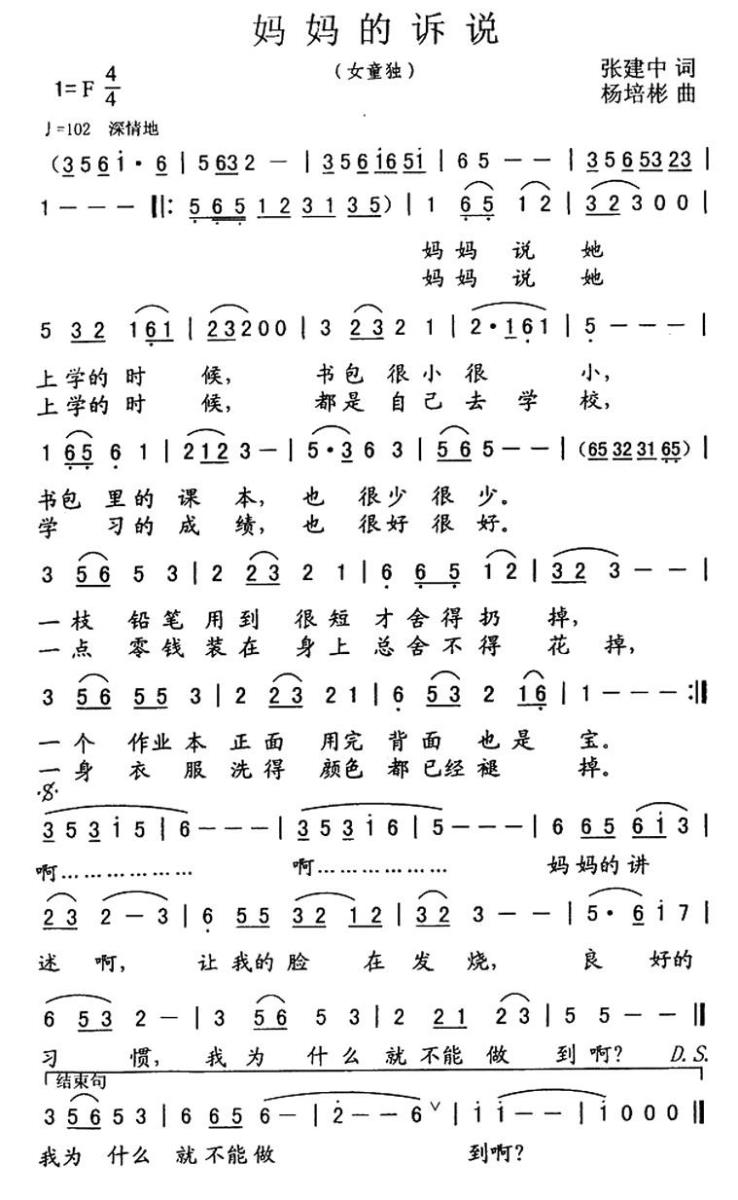 妈妈的诉说
（女童独）
1=F 4/4
张建中 词
杨培彬 曲
♩=102 深情地
（3 5 6 i· 6 | 5 63 2 － | 3 5 6 i 6 5 i | 6 5 － － | 3 5 6 5 3 2 3 |
1 － － － ‖: 5 6 5 1 2 3 1 3 5）| 1 6 5 1 2 | 3 2 3 0 0 |
妈妈 说 她
妈妈 说 她
5 3 2 1 6 1 | 2 3 2 0 0 | 3 2 3 2 1 | 2· 1 6 1 | 5 － － － |
上学的 时 候， 书包 很 小 很 小，
上学的 时 候， 都是 自 己 去 学 校，
1 6 5 6 1 | 2 1 2 3 － | 5· 3 6 3 | 5 6 5 － － |（65 32 31 65）|
书包 里的 课 本， 也 很少 很 少。
学 习的 成 绩， 也 很好 很 好。
3 5 6 5 3 | 2 2 3 2 1 | 6 6 5 1 2 | 3 2 3 － － |
一枝 铅笔 用到 很短 才舍得扔 掉，
一点 零钱 装在 身上 总舍不得 花 掉，
3 5 6 5 5 3 | 2 2 3 2 1 | 6 5 3 2 1 6 | 1 － － － :‖
一个 作业本 正面 用完 背面 也是 宝。
一身 衣 服 洗得 颜色 都 已经 褪 掉。
3 5 3 i 5 | 6 － － － | 3 5 3 i 6 | 5 － － － | 6 6 5 6 i 3 |
啊……………… 啊……………… 妈妈的 讲
2 3 2 － 3 | 6 5 5 3 2 1 2 | 3 2 3 － － | 5· 6 i 7 |
述 啊， 让我的 脸 在 发 烧， 良 好的
6 5 3 2 － | 3 5 6 5 3 | 2 2 1 2 3 | 5 5 － － ‖
习 惯， 我为 什么 就不能 做 到啊？ D.S.
结束句
3 5 6 5 3 | 6 6 5 6 － | 2 － － 6 ∨ | i i － － | i 0 0 0 ‖
我为 什么 就不能做 到啊？